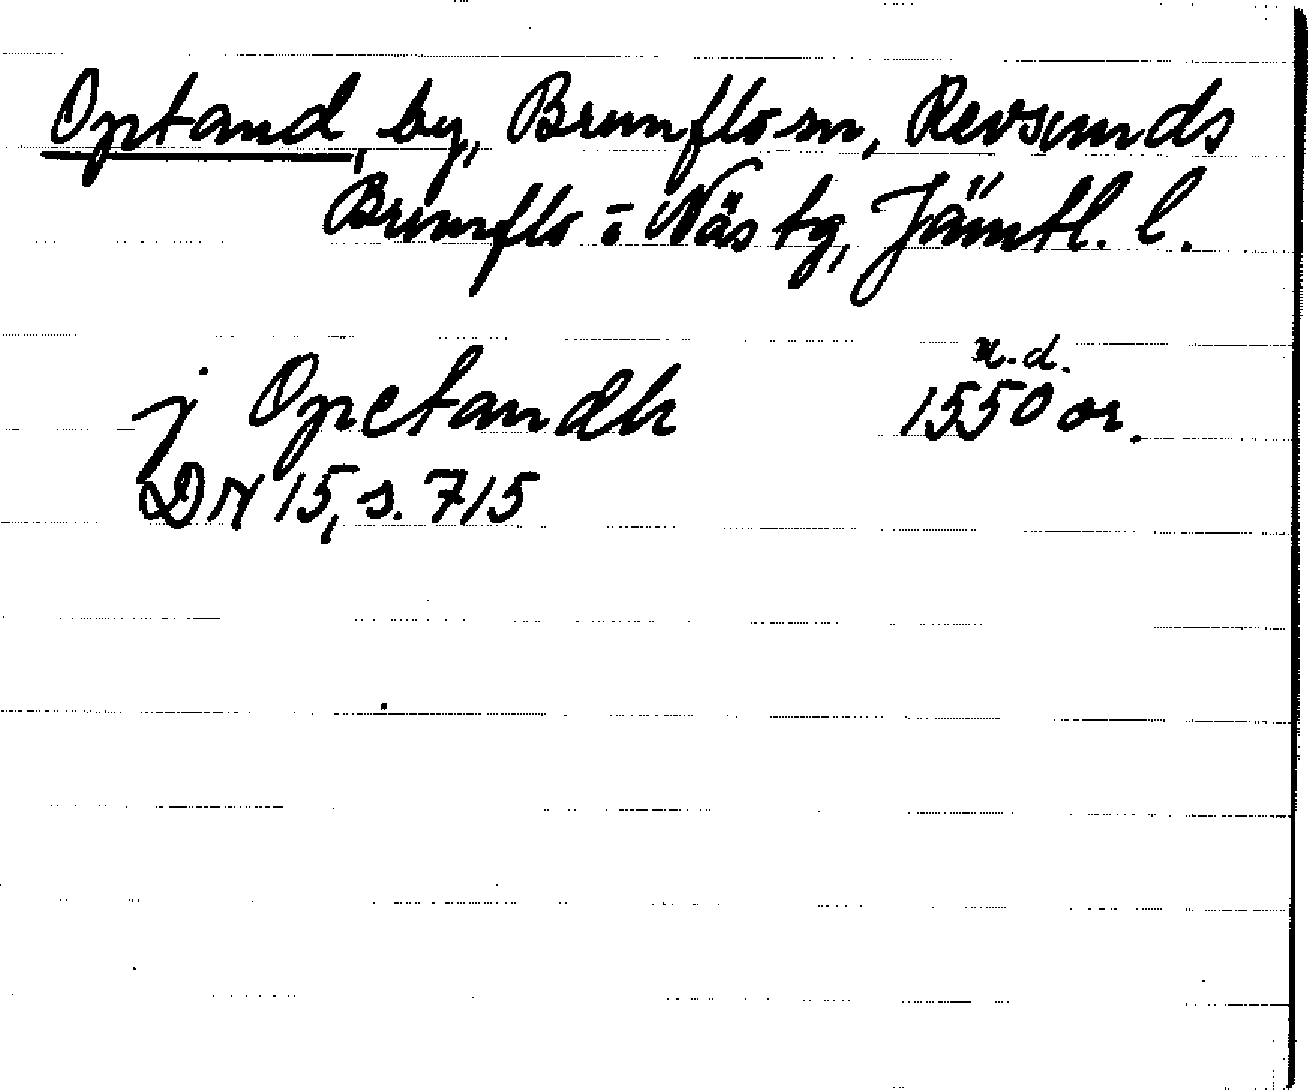 Optand, by, Brunflo sn, Revsunds
Brunflo o Näs tg, Jämtl. l.
j Opetandh 1550 u.d. or.
DN 15, s. 715